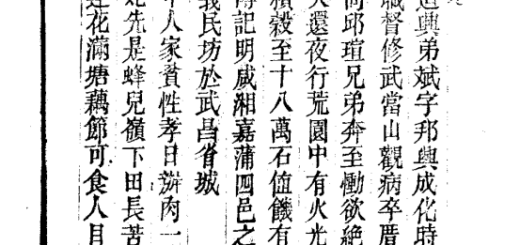 興弟斌字邦興成化時
職督修武當山觀病卒厝
邱瑄兄弟奔至慟欲絕
還夜行荒園中有火光
積穀至十八萬石值饑有
傳記明咸湘嘉蒲四邑之
義民坊於武昌省城
人家貧性孝日辦肉一
先是蜂兒嶺下田長苦
蓮花滿塘藕節可食人目